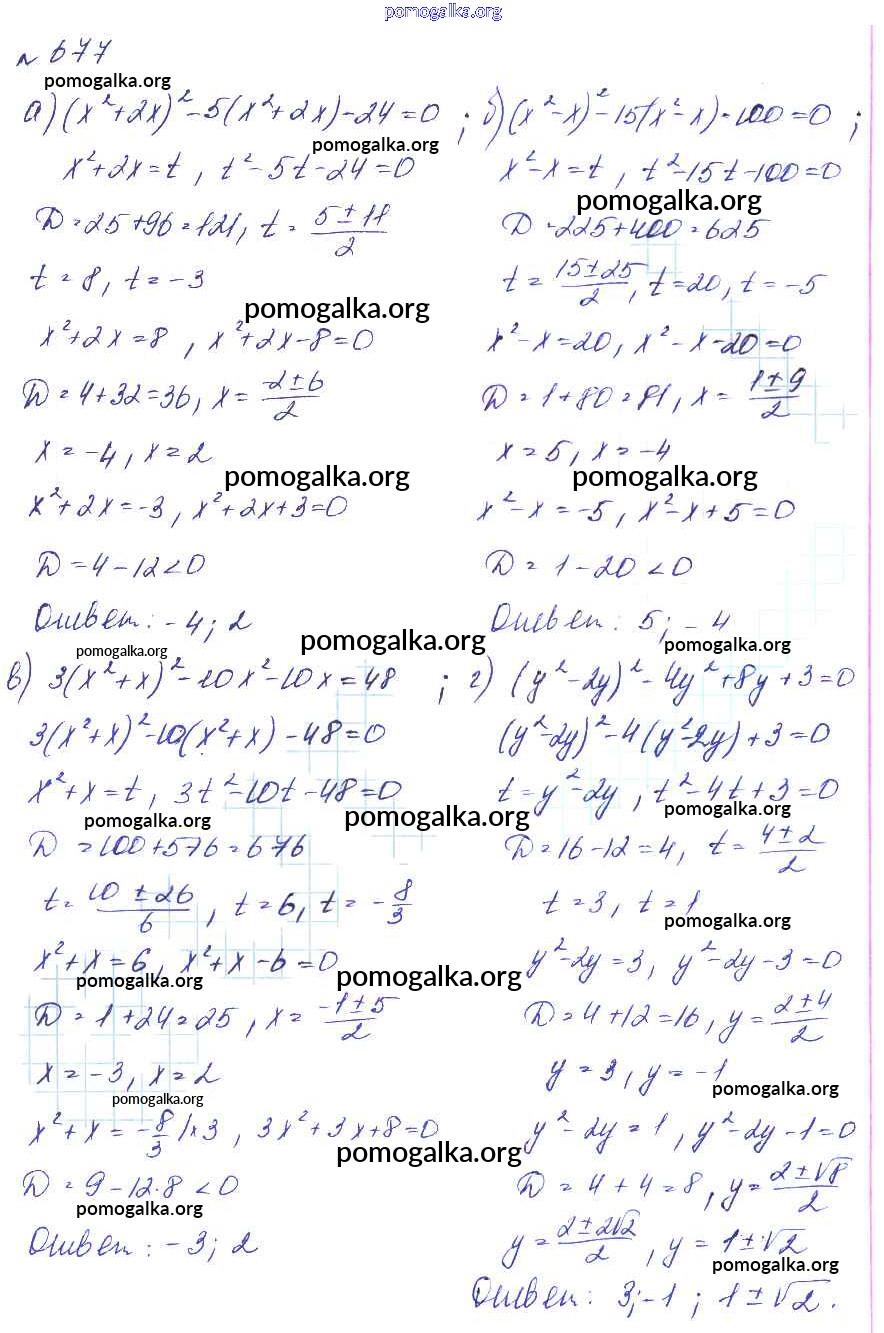 pomogalka.org
№ 677
pomogalka.org
а) (x²+2x)²-5(x²+2x)-24=0 ;
pomogalka.org
x²+2x=t, t²-5t-24=0
D=25+96=121, t= (5±11)/2
t=8, t=-3
pomogalka.org
x²+2x=8, x²+2x-8=0
D=4+32=36, x= (-2±6)/2
x=-4, x=2
pomogalka.org
x²+2x=-3, x²+2x+3=0
D=4-12<0
Ответ: -4; 2
pomogalka.org
б) (x²-x)²-15(x²-x)-100=0 ;
x²-x=t, t²-15t-100=0
pomogalka.org
D=225+400=625
t= (15±25)/2, t=20, t=-5
x²-x=20, x²-x-20=0
D=1+80=81, x= (1±9)/2
x=5, x=-4
pomogalka.org
x²-x=-5, x²-x+5=0
D=1-20<0
Ответ: 5; -4
pomogalka.org
pomogalka.org
в) 3(x²+x)²-10x²-10x=48 ;
3(x²+x)²-10(x²+x)-48=0
x²+x=t, 3t²-10t-48=0
pomogalka.org
pomogalka.org
D=100+576=676
t= (10±26)/6, t=6, t=-8/3
x²+x=6, x²+x-6=0
pomogalka.org
pomogalka.org
D=1+24=25, x= (-1±5)/2
x=-3, x=2
pomogalka.org
x²+x=-8/3 |×3, 3x²+3x+8=0
pomogalka.org
D=9-12·8<0
pomogalka.org
Ответ: -3; 2
г) (y²-2y)²-4y²+8y+3=0
(y²-2y)²-4(y²-2y)+3=0
t=y²-2y, t²-4t+3=0
pomogalka.org
D=16-12=4, t= (4±2)/2
t=3, t=1
pomogalka.org
y²-2y=3, y²-2y-3=0
D=4+12=16, y= (2±4)/2
y=3, y=-1
pomogalka.org
y²-2y=1, y²-2y-1=0
D=4+4=8, y= (2±√8)/2
y= (2±2√2)/2, y=1±√2
pomogalka.org
Ответ: 3; -1; 1±√2.